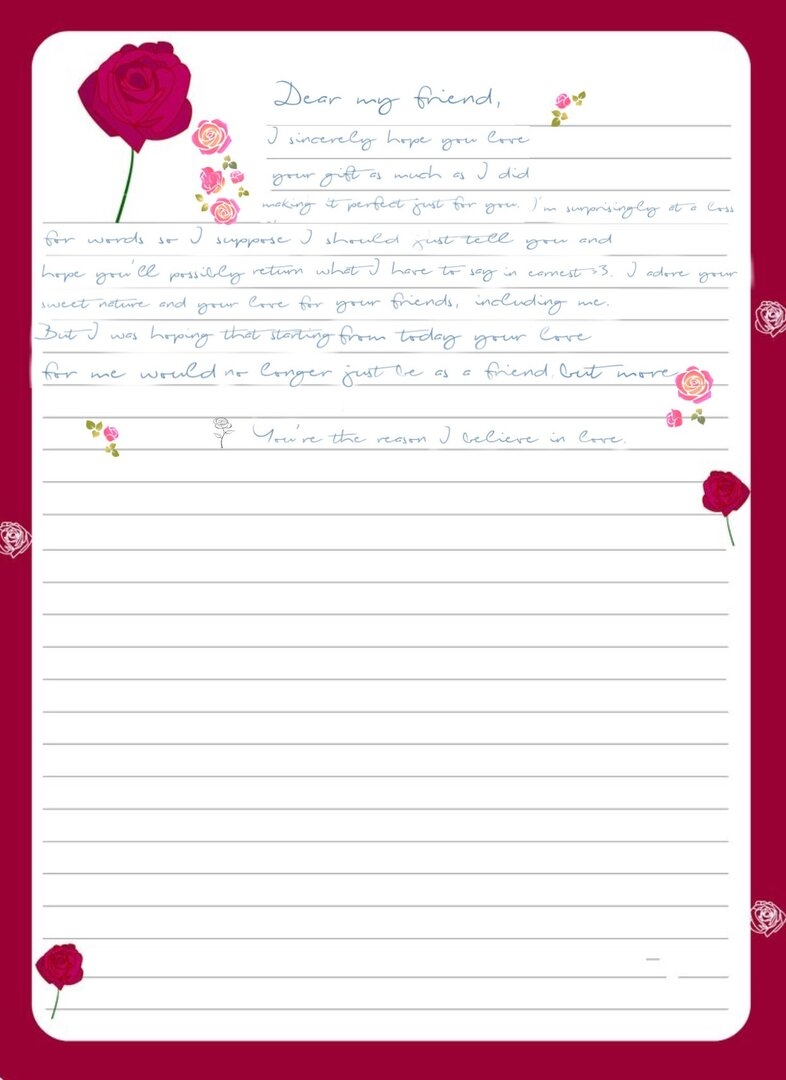 Dear my friend,
I sincerely hope you love
your gift as much as I did
making it perfect just for you. I'm surprisingly at a loss
for words so I suppose I should just tell you and
hope you'll possibly return what I have to say in earnest <3. I adore your
sweet nature and your love for your friends, including me.
But I was hoping that starting from today your love
for me would no longer just be as a friend, but more
You're the reason I believe in love.